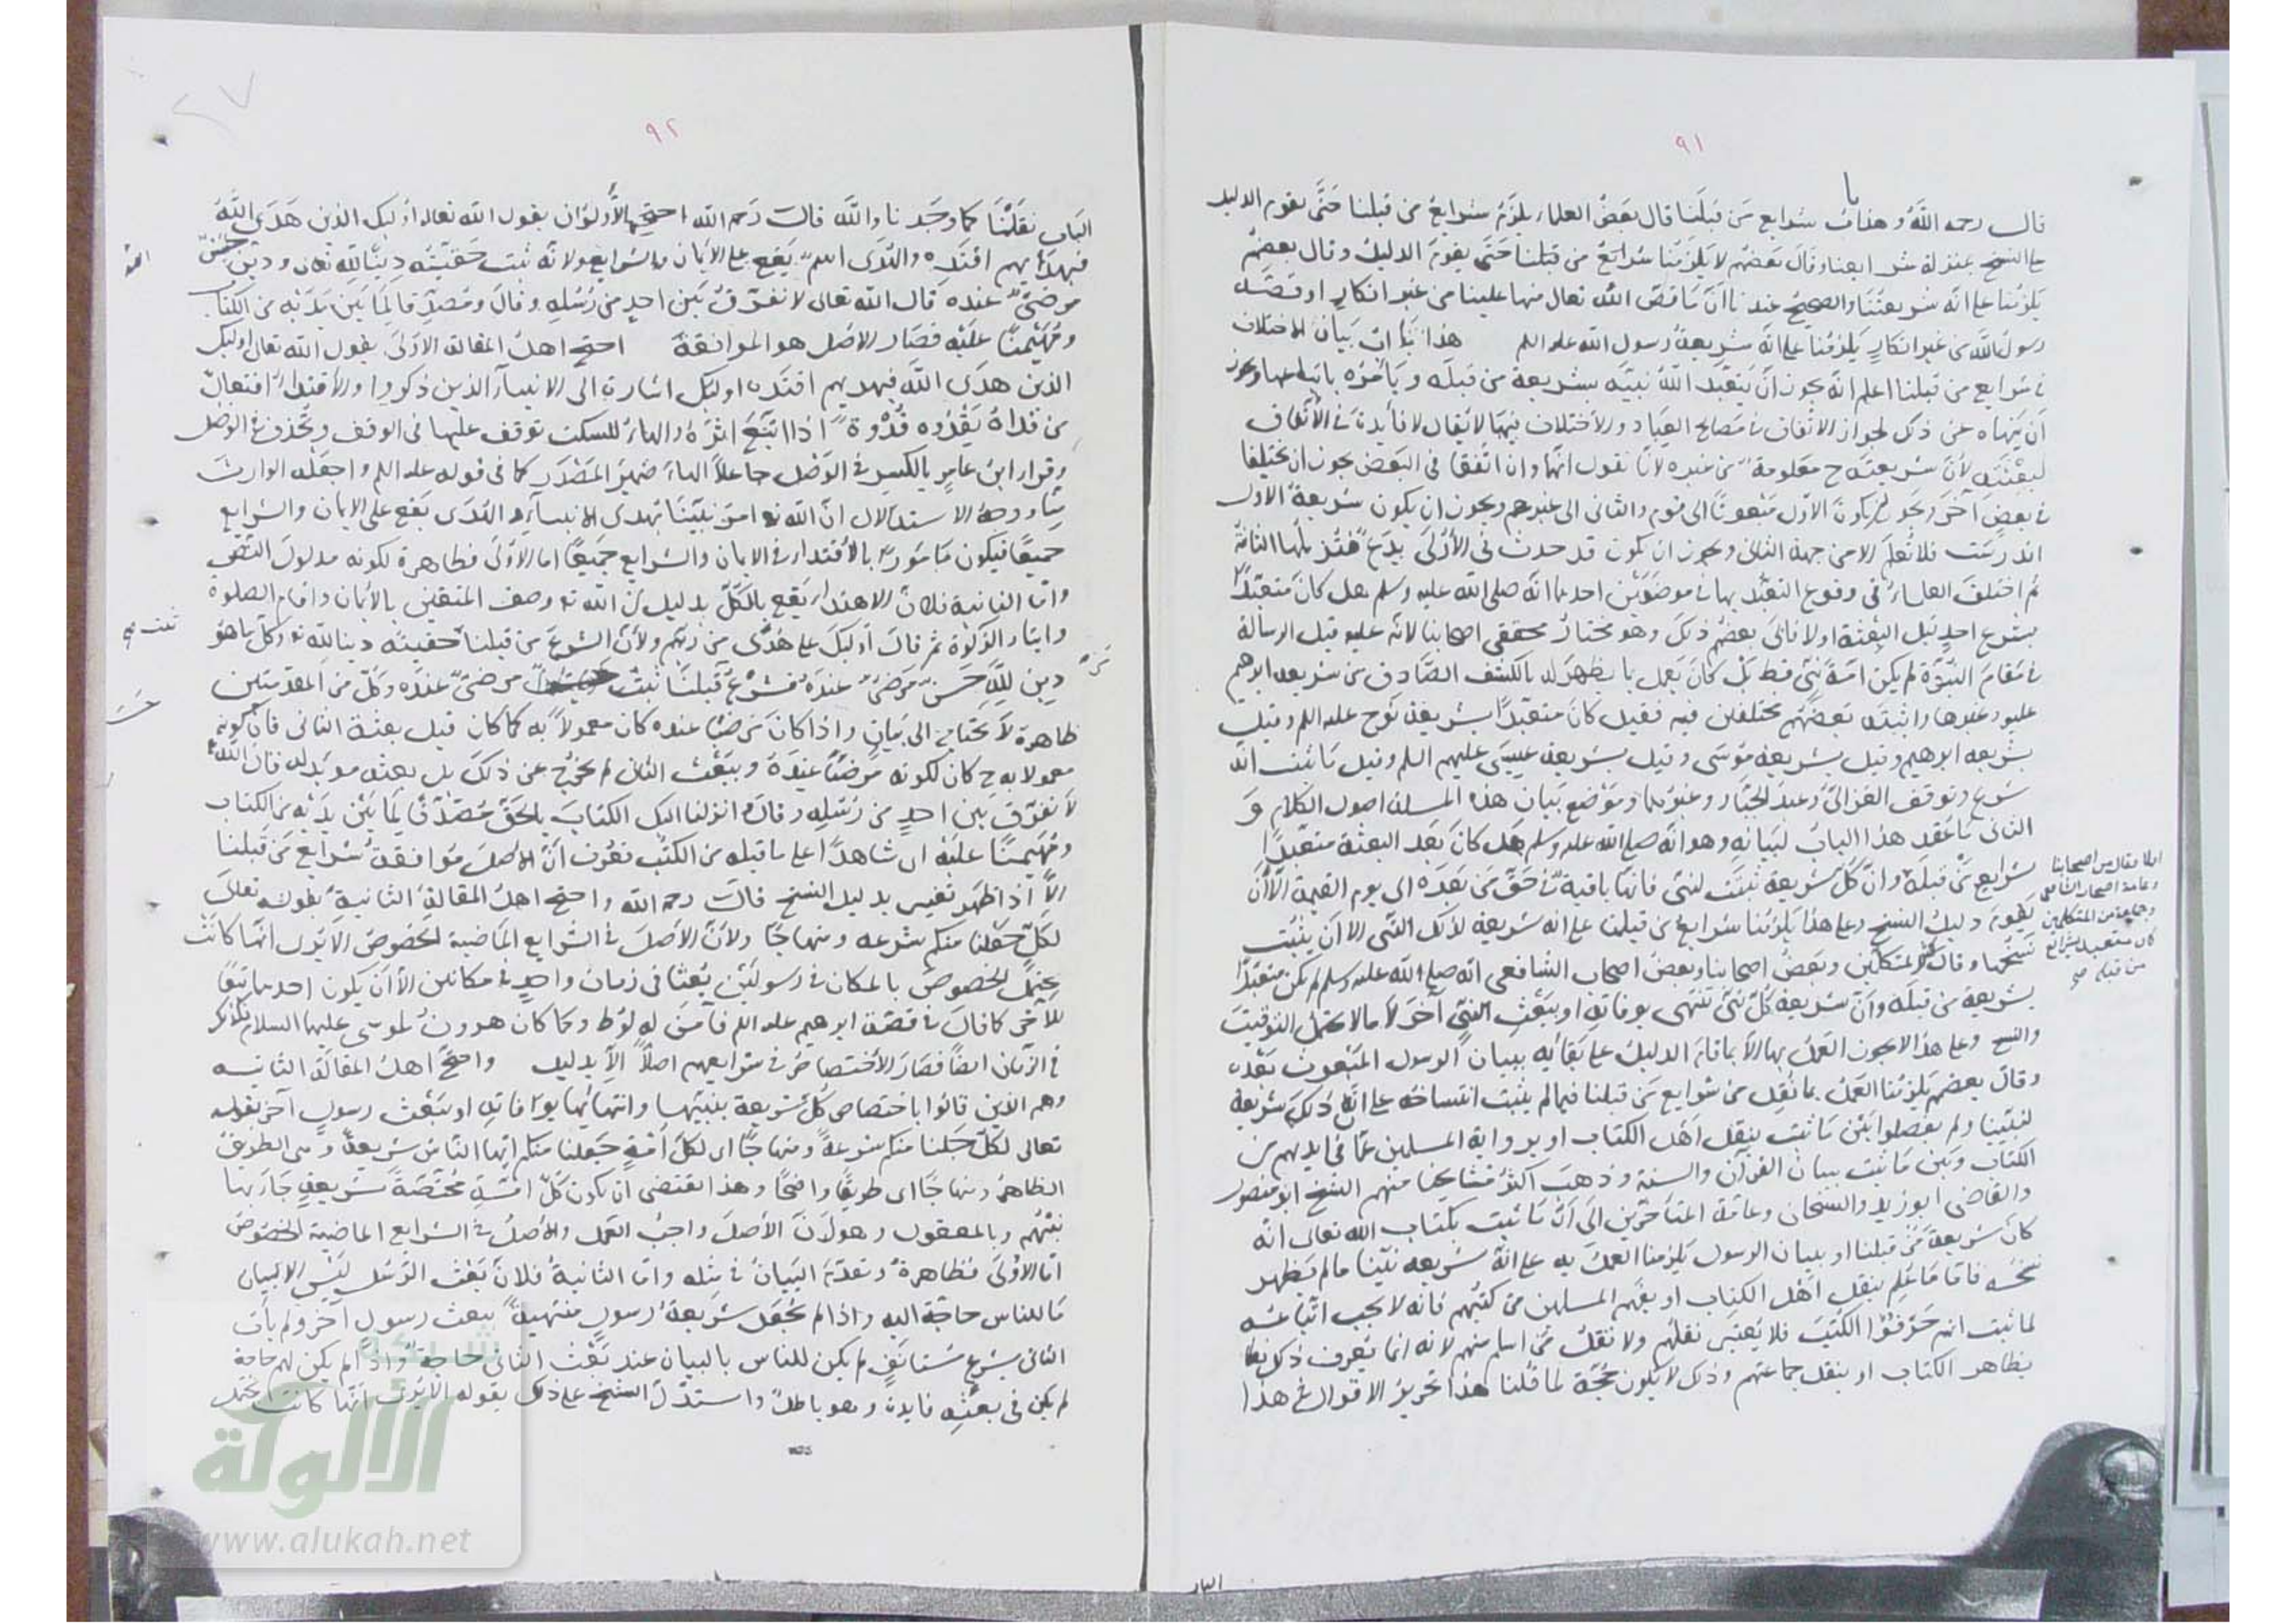 ٩١
قال رحمه الله و هذا باب شرايع من قبلنا قال بعض العلماء يلزم شرايع من قبلنا حتى يقوم الدليل
على النسخ بمنزلة شرايعنا وقال بعضهم لا يلزمنا شرايع من قبلنا حتى يقوم الدليل وقال بعضهم
يلزمنا على انه شريعتنا والصحيح عندنا ان ما قص الله تعالى منها علينا من غير انكار او قصه
رسول الله من غير انكار يلزمنا على انه شريعة رسول الله عليه السلم هذا باب بيان الاختلاف
في شرايع من قبلنا اعلم انه يجوز ان يتعبد الله نبيه بشريعة من قبله و يأمره باتباعها ويجوز
ان ينهاه عن ذلك لجواز الاتفاق في مصالح العباد و الاختلاف فيها لا يقال لا فايدة في الاتفاق
لبعثته لان شريعته ح معلومة من غيره لانا نقول انهما وان اتفقا في البعض يجوز ان يختلفا
في بعض آخر ويجوز ان يكون الاول مبعوثا الى قوم والثاني الى غيرهم ويجوز ان يكون شريعة الاول
اندرست فلا تعلم الا من جهة الثاني ويجوز ان يكون قد حدث في الاولى بدع فتزيلها الثانية
ثم اختلف العلماء في وقوع التعبد بها في موضعين احدهما انه صلى الله عليه وسلم هل كان متعبدا
بشرع احد قبل البعثة اولا فابى بعضهم ذلك وهو مختار محققي اصحابنا لانه عليه قبل الرسالة
في مقام النبوة لم يكن امة نبي قط بل كان يعمل بما يظهر له بالكشف الصادق من شريعة ابرهيم
عليه وغيرها واثبته بعضهم مختلفين فيه فقيل كان متعبدا بشريعة نوح عليه السلم وقيل
بشريعة ابرهيم وقيل بشريعة موسى وقيل بشريعة عيسى عليهم السلم وقيل ما ثبت انه
شرع وتوقف الغزالي وعبد الجبار وغيرهما وموضع بيان هذه المسئلة اصول الكلام و
الثاني ما عقد هذا الباب لبيانه وهو انه صلى الله عليه وسلم هل كان بعد البعثة متعبدا
شرايع من قبله وان كل شريعة ثبتت لنبي فانها باقية في حق من بعده الى يوم القيمة الا ان
يقوم دليل النسخ وعلى هذا يلزمنا شرايع من قبلنا على انه شريعة لذلك النبي الا ان يثبت
نسخها وقال اكثر المتكلمين وبعض اصحابنا وبعض اصحاب الشافعي انه صلى الله عليه وسلم لم يكن متعبدا
بشريعة من قبله وان شريعة كل نبي تنتهي بوفاته او ببعث النبي آخر لا ما لا يحتمل التوقيت
والنسخ وعلى هذا لا يجوز العمل بها الا بما قام الدليل على بقائه ببيان الرسول المبعوث بعده
وقال بعضهم يلزمنا العمل بما نقل من شرايع من قبلنا فيما لم يثبت انتساخه على ان ذلك شريعة
لنبينا ولم يفصلوا بين ما ثبت بنقل اهل الكتاب او برواية المسلمين عما في ايديهم من
الكتاب وبين ما ثبت ببيان القرآن والسنة وذهب اكثر مشايخنا منهم الشيخ ابو منصور
والقاضي ابو زيد والشيخان وعامة المتأخرين الى ان ما ثبت بكتاب الله تعالى انه
كان شريعة من قبلنا او ببيان الرسول يلزمنا العمل به على انه شريعة نبينا ما لم يظهر
نسخه فاما ما علم بنقل اهل الكتاب او بفهم المسلمين من كتبهم فانه لا يجب اتباعه
لما ثبت انهم حرفوا الكتب فلا يعتبر نقلهم ولا نقل من اسلم منهم لانه انما يعرف ذلك
بظاهر الكتاب او بنقل جماعتهم وذلك لا يكون حجة لما قلنا هذا تحرير الاقوال في هذا
اولا فقال من اصحابنا
وعامة اصحاب الشافعي
وجماعة من المتكلمين
كان متعبدا بشرايع
من قبله صح
الباب
٩٢
٢٧
الباب نقلنا كما وجدنا والله قال رحمه الله احتج الأولون بقول الله تعالى اوليك الذين هدى الله
فبهديهم اقتده والهدى اسم يقع على الايمان والشرايع ولانه ثبت حقيته دينا لله تعالى ودين حسن
مرضي عنده قال الله تعالى لا نفرق بين احد من رسله وقال ومصدقا لما بين يديه من الكتاب
ومهيمنا عليه فصار الاصل هو الموافقة احتج اهل المقالة الاولى بقول الله تعالى اوليك
الذين هدى الله فبهديهم اقتده اوليك اشارة الى الانبياء الذين ذكروا والاقتداء افتعال
من قداه يقدوه قدوة اذا اتبع اثره والهاء للسكت توقف عليها في الوقف وتحذف في الوصل
وقراء ابن عامر بالكسر في الوصل جاعلا الهاء ضمير المصدر كما في قوله عليه السلم واجعله الوارث
منا ووجه الاستدلال ان الله تع امر نبينا بهدى الانبياء والهدى يقع على الايمان والشرايع
جميعا فيكون مامورا بالاقتداء في الايمان والشرايع جميعا اما الاولى فظاهرة لكونه مدلول النص
واما الثانية فلان الاهتداء يقع بالكل بدليل ان الله تع وصف المتقين بالايمان واقام الصلوة
وايتاء الزكوة ثم قال اوليك على هدى من ربهم ولان الشرع من قبلنا حقيته دينا لله تع وكل ما هو
دين لله حسن مرضي عنده فشرع قبلنا ثبت مرضي عنده وكل من المقدمتين
ظاهرة لا تحتاج الى بيان واذا كان مرضيا عنده كان معمولا به كما كان قبل بعثة الثاني فان كونه
معمولا به ح كان لكونه مرضيا عنده وببعث الثاني لم يخرج عن ذلك بل بعثه مويد له قال الله
لا نفرق بين احد من رسله وقال وانزلنا اليك الكتاب بالحق مصدقا لما بين يديه من الكتاب
ومهيمنا عليه اي شاهدا على ما قبله من الكتب فعرف ان الاصل موافقة شرايع من قبلنا
الا اذا ظهر تغيير بدليل النسخ قال رحمه الله واحتج اهل المقالة الثانية بقوله تعالى
لكل جعلنا منكم شرعة ومنهاجا ولان الاصل في الشرايع الماضية الخصوص الا يرى انها كانت
تحتمل الخصوص بالمكان في رسولين بعثا في زمان واحد في مكانين الا ان يكون احدهما تبعا
للآخر كما قال في قصة ابرهيم عليه السلم فآمن له لوط وكما كان هرون لموسى عليهما السلام فكذلك
في الزمان ايضا فصار الاختصاص في شرايعهم اصلا الا بدليل واحتج اهل المقالة الثانية
وهم الذين قالوا باختصاص كل شريعة بنبيها وانتهائها بوفاته او ببعث رسول آخر بقوله
تعالى لكل جعلنا منكم شرعة ومنهاجا اي لكل امة جعلنا منكم ايها الناس شريعة وهي الطريق
الظاهر ومنهاجا اي طريقا واضحا وهذا يقتضي ان يكون كل امة مختصة بشريعة جاء بها
نبيهم وبالمعقول وهو ان الاصل واجب العمل والاصل في الشرايع الماضية الخصوص
اما الاولى فظاهرة وتقدم البيان في مثله واما الثانية فلان بعث الرسل ليس الا لبيان
ما للناس حاجة اليه واذا لم يجعل شريعة رسول منتهية ببعث رسول آخر ولم يات
الثاني بشرع مستانف لم يكن للناس بالبيان عند بعث الثاني حاجة واذا لم يكن لهم حاجة
لم يكن في بعثه فايدة وهو باطل واستدل الشيخ على ذلك بقوله الا يرى انها كانت تحتمل
شبكة
الألوكة
www.alukah.net